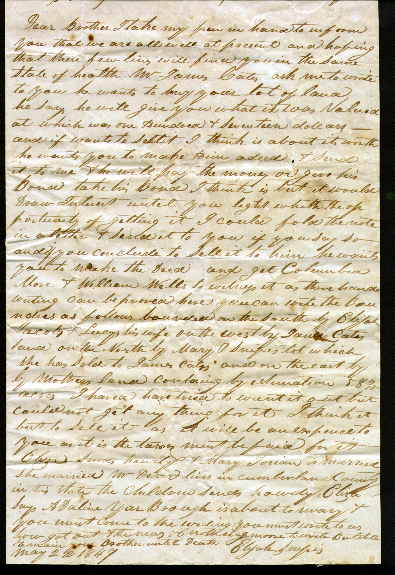 Dear Brother I take my pen in hand to inform
you that we are all well at present and hoping
that these few lines will find you in the same
state of health Mr James Cates ask me to write
to you he wants to buy your lot of land
he says he will give you what it was valued
at which was one hundred & seventeen dollars
and if wants to sell it I think is about its worth
he wants you to make him a deed & send
it to me & he will pay the money or give his
Bond take his Bond I think is but it would
draw interest until you
of getting it I could fold the note
in a letter & send it to you if you say so
and if you conclude to sell it to him he wants
you to make the deed and get Columbus
Moore & William Wells to witness it as there hand
writing can be proved here you can write the boun
daries as follows bounded on the South by Elijah
Jacobs & Lucy his wife on the west by James Cates
land on the North by Mary Snipes lot which
she has sold to James Cates and on the east by
by Mothers land containing by estimation 58 3/4
acres I have tried to rent it out but
could not get any thing for it I think it
but to sell it as it will be an expence to
you as it is the taxes must be paid for it
howdy & Mary is married
she married Mr lives in cumberland county
in his State the Children sends howdy
says Adaline Yarbrough is about to marry &
you must come to the wedding you must write to us
how got out the news nothing more to write but
remain your Brother until Death
May 2 1847 Elijah Snipes